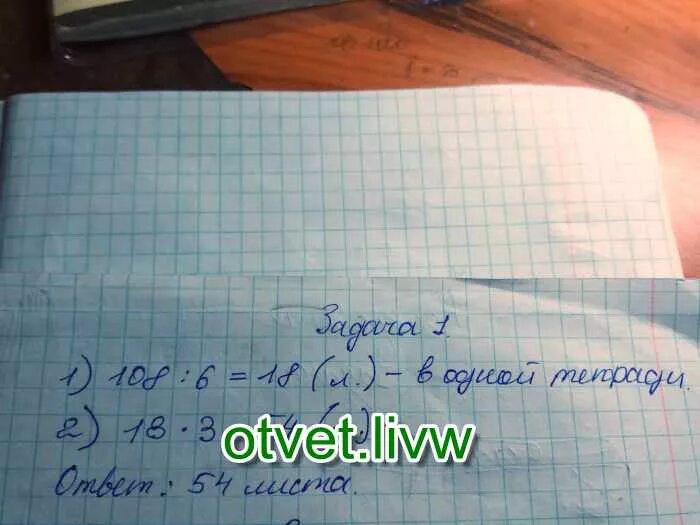 Задача 1.
1) 108 : 6 = 18 (л.) – в одной тетради.
2) 18 · 3 54
otvet.livw
Ответ: 54 листа.